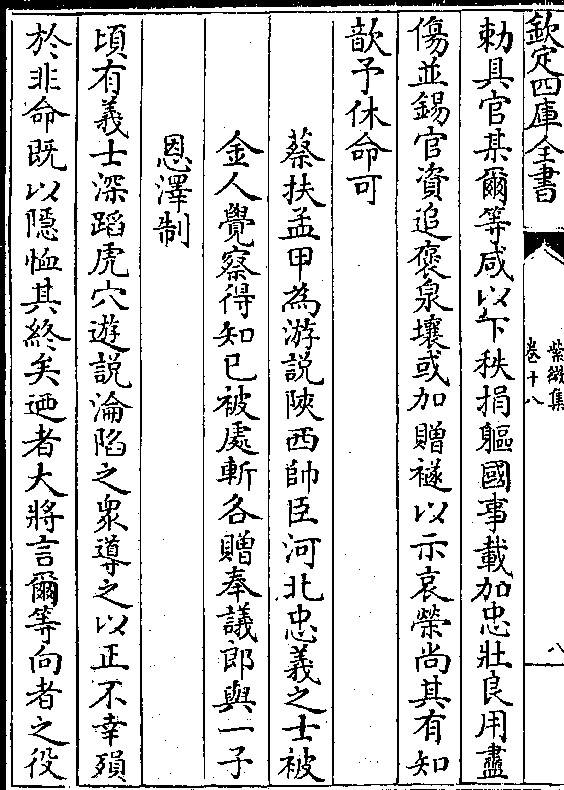 欽定四庫全書
紫微集
卷十八
八
勅具官某爾等咸以下秩捐軀國事載加忠壯良用盡
傷並錫官資追褒泉壤或加贈襚以示哀榮尚其有知
歆予休命可
蔡扶孟甲為游說陜西帥臣河北忠義之士被
金人覺察得知已被處斬各贈奉議郎與一子
恩澤制
頃有義士深蹈虎穴遊說淪陷之衆導之以正不幸殞
於非命既以隱恤其終矣廼者大將言爾等向者之役